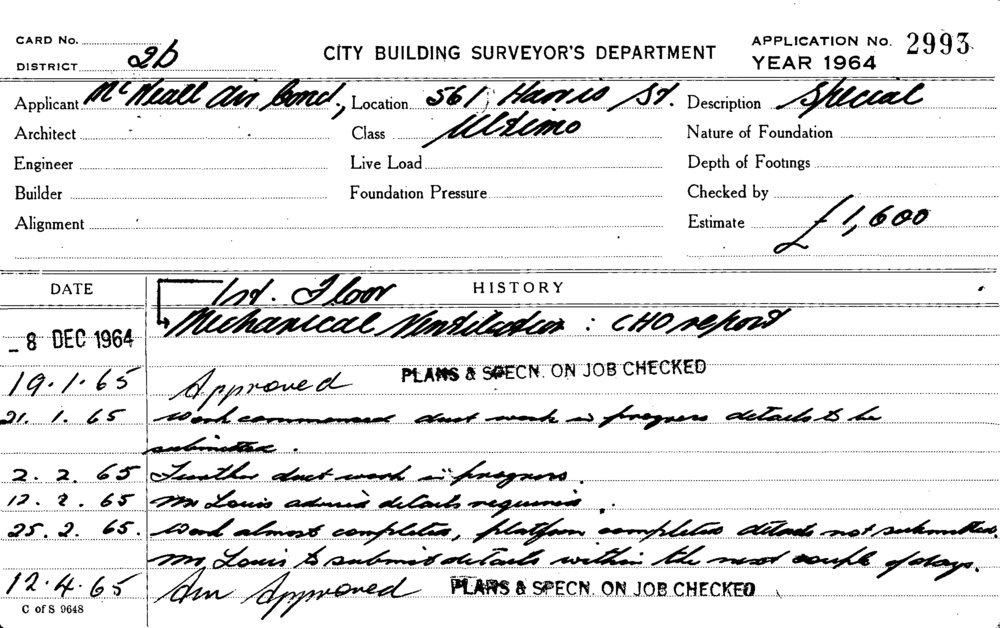 CARD No.
CITY BUILDING SURVEYOR'S DEPARTMENT
APPLICATION No. 2993
DISTRICT 2b
YEAR 1964
Applicant McNeall Air Cond., Location 561 Harris St. Description Special
Architect Class Ultimo Nature of Foundation
Engineer Live Load Depth of Footings
Builder Foundation Pressure Checked by
Alignment Estimate £1,600
DATE 1st. Floor HISTORY
- 8 DEC 1964 Mechanical Ventilation : CHO report
19.1.65 Approved PLANS & SPECN. ON JOB CHECKED
21.1.65 Work commenced duct work in progress details to be
submitted.
2.2.65 Further duct work in progress.
12.2.65 Mr Louis advised details required.
25.2.65. Work almost completed, platform completed details not submitted.
Mr Louis to submit details within the next couple of days.
12.4.65 Am Approved PLANS & SPECN. ON JOB CHECKED
C of S 9648